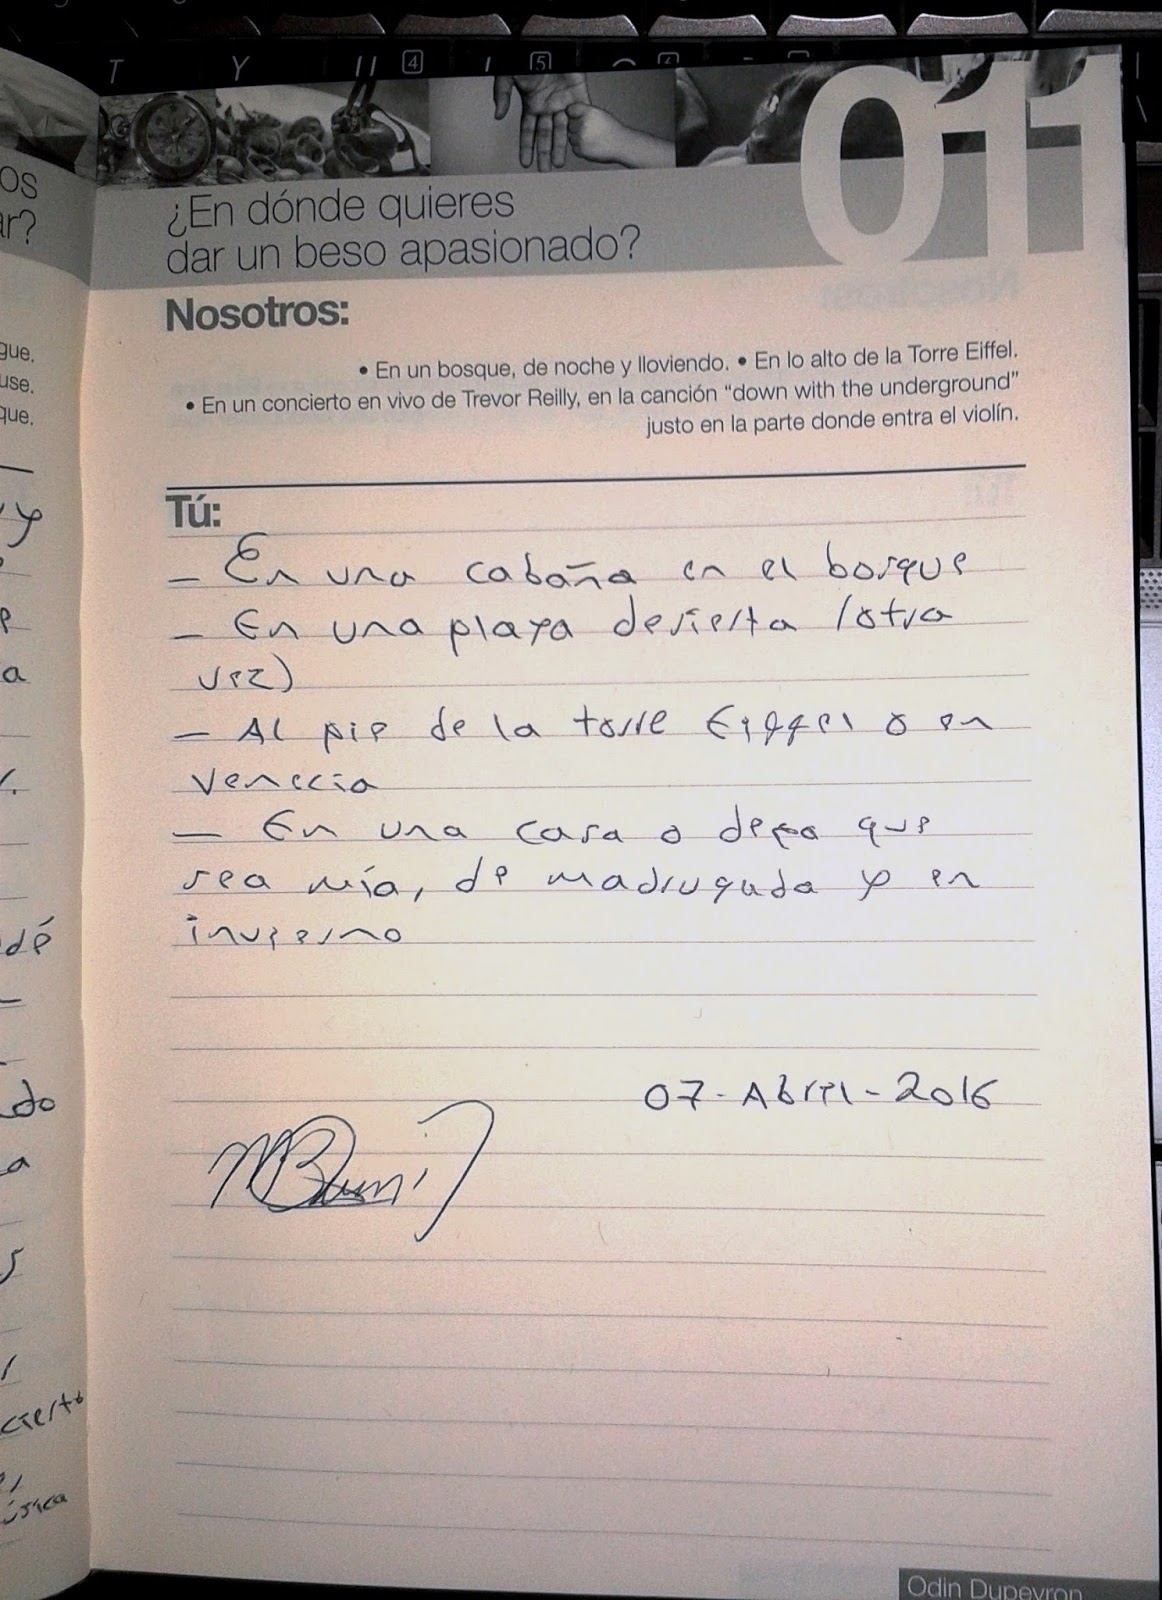 T Y U 4 I 5 6
011
¿En dónde quieres
dar un beso apasionado?
Nosotros:
• En un bosque, de noche y lloviendo. • En lo alto de la Torre Eiffel.
• En un concierto en vivo de Trevor Reilly, en la canción “down with the underground”
justo en la parte donde entra el violín.
Tú:
- En una cabaña en el bosque
- En una playa desierta (otra
vez)
- Al pie de la torre Eiffel o en
Venecia
- En una casa o depa que
sea mía, de madrugada y en
invierno
07-Abril-2016
Odin Dupeyron
os
ar?
gue.
use.
que.
y
a
dé
do
a
cierto
úsica